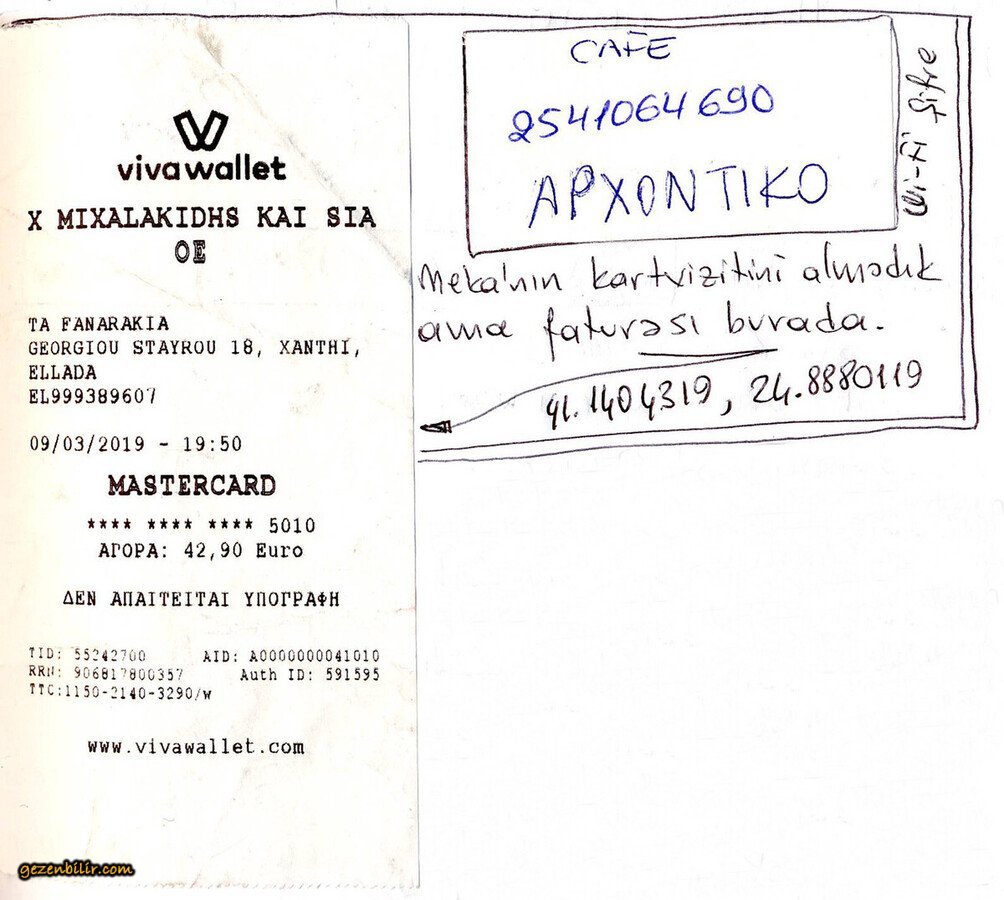 vivawallet
X MIXALAKIDHS KAI SIA
OE
TA FANARAKIA
GEORGIOU STAYROU 18, XANTHI,
ELLADA
EL999389607
09/03/2019 - 19:50
MASTERCARD
**** **** **** 5010
ΑΓΟΡΑ: 42,90 Euro
ΔΕΝ ΑΠΑΙΤΕΙΤΑΙ ΥΠΟΓΡΑΦΗ
TID: 55242700 AID: A0000000041010
RRN: 906817800357 Auth ID: 591595
TTC:1150-2140-3290/w
www.vivawallet.com
CAFE
2541064690
ΑΡΧΟΝΤΙΚΟ
Wi-Fi Şifre
Meka'nın kartvizitini almadık
ama faturası burada.
41.1404319, 24.8880119
gezenbilir.com